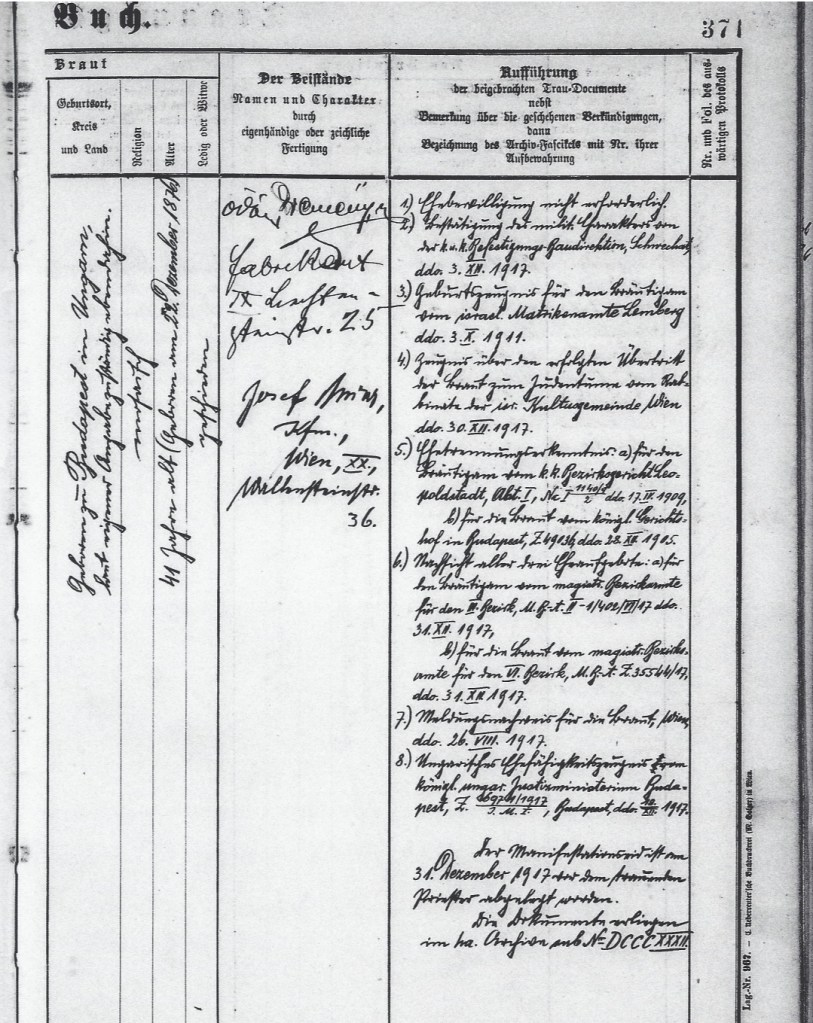 Buch.
371
Braut
Geburtsort,
Kreis
und Land
Religion
Alter
Ledig oder Witwe
Der Beistände
Namen und Charakter
durch
eigenhändige oder zeichliche
Fertigung
Aufführung
der beigebrachten Trau-Documente
nebst
Bemerkung über die geschehenen Verkündigungen,
dann
Bezeichnung des Archiv-Fascikels mit Nr. ihrer
Aufbewahrung
Nr. und Fol. des aus-
wärtigen Protokolls
Geboren zu Budapest in Ungarn,
laut eigener Angabe zuständig ebendahin.
mosaisch
41 Jahre alt (Geboren am 22. Dezember 1876)
geschieden
Ödön
Fabrikant
IX Liechten-
steinstr. 25
Josef
Kfm.,
Wien, XX.,
Wallensteinstr.
36.
1.) Ehebewilligung nicht erforderlich.
2.) Bestätigung des milit. Charakters von
der k.u.k. Befestigungs-Baudirektion, Schwechat,
ddo. 3. XII. 1917.
3.) Geburtszeugnis für den Bräutigam
vom israel. Matrikenamte Lemberg
ddo. 3. X. 1911.
4.) Zeugnis über den erfolgten Übertritt
der Braut zum Judentume vom Rab-
binate der isr. Kultusgemeinde Wien
ddo. 30. XII. 1917.
5.) Ehetrennungserkenntnis: a) für den
Bräutigam vom k.k. Bezirksgericht Leo-
poldstadt, Abt. I, Nc I 1140/9/2 ddo. 17. IX. 1909,
b) für die Braut vom königl. Gerichts-
hof in Budapest, Z. 49036, ddo. 28. XII. 1905.
6.) Nachsicht aller drei Eheaufgebote: a) für
den Bräutigam vom magistr. Bezirksamte
für den II. Bezirk, M.B.A. II-1/402/VII/17 ddo.
31. XII. 1917,
b) für die Braut vom magistr. Bezirks-
amte für den VI. Bezirk, M.B.A. Z. 35544/17,
ddo. 31. XII. 1917.
7.) Meldungsnachweis für die Braut, Wien,
ddo. 26. VIII. 1917.
8.) Ungarisches Ehefähigkeitszeugnis vom
königl. ungar. Justizministerium Buda-
pest, Z. /1917 , Budapest, ddo. XII. 1917.
Der Manifestationseid ist am
31. Dezember 1917 vor dem trauenden
Priester abgelegt worden.
Die Dokumente erliegen
im ha. Archive sub No DCCCXXXII.
Lag.-Nr. 967. — C. Ueberreuter'sche Buchdruckerei (M. Salzer) in Wien.